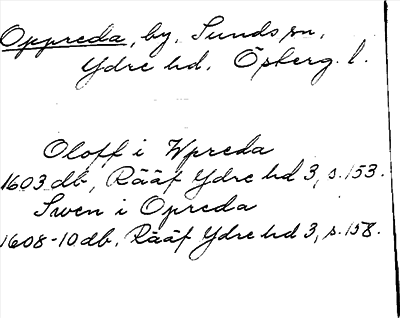 Oppreda, by, Sunds sn,
Ydre hd. Österg. l.
Oloff i Wpreda
1603 db, Rääf Ydre hd 3, s. 153.
Swen i Opreda
1608-10 db, Rääf Ydre hd 3, s. 158.